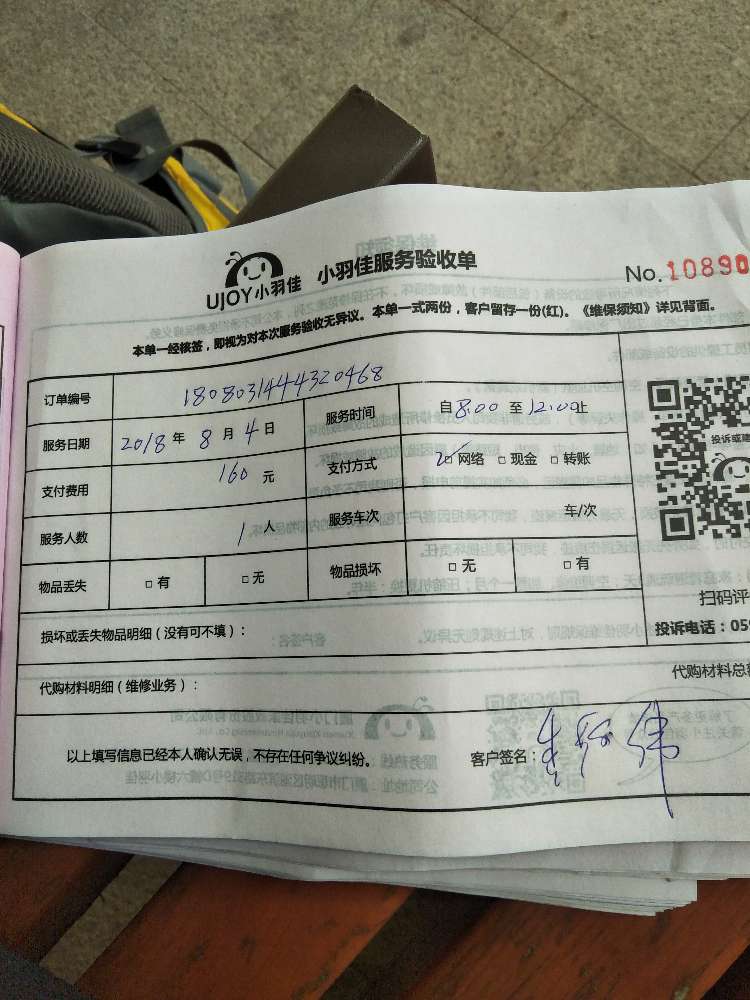 UJOY小羽佳 小羽佳服务验收单
No.10890
本单一经核签，即视为对本次服务验收无异议。本单一式两份，客户留存一份(红)。《维保须知》详见背面。
订单编号 1808031444320468
服务日期 2018 年 8 月 4 日 服务时间 自8:00 至12:00止
支付费用 160 元 支付方式 □网络 □现金 □转账
服务人数 1 人 服务车次 车/次
物品丢失 □有 □无 物品损坏 □无 □有
投诉或建
扫码评
损坏或丢失物品明细（没有可不填）：
投诉电话：059
代购材料明细（维修业务）：
代购材料总
以上填写信息已经本人确认无误，不存在任何争议纠纷。 客户签名：